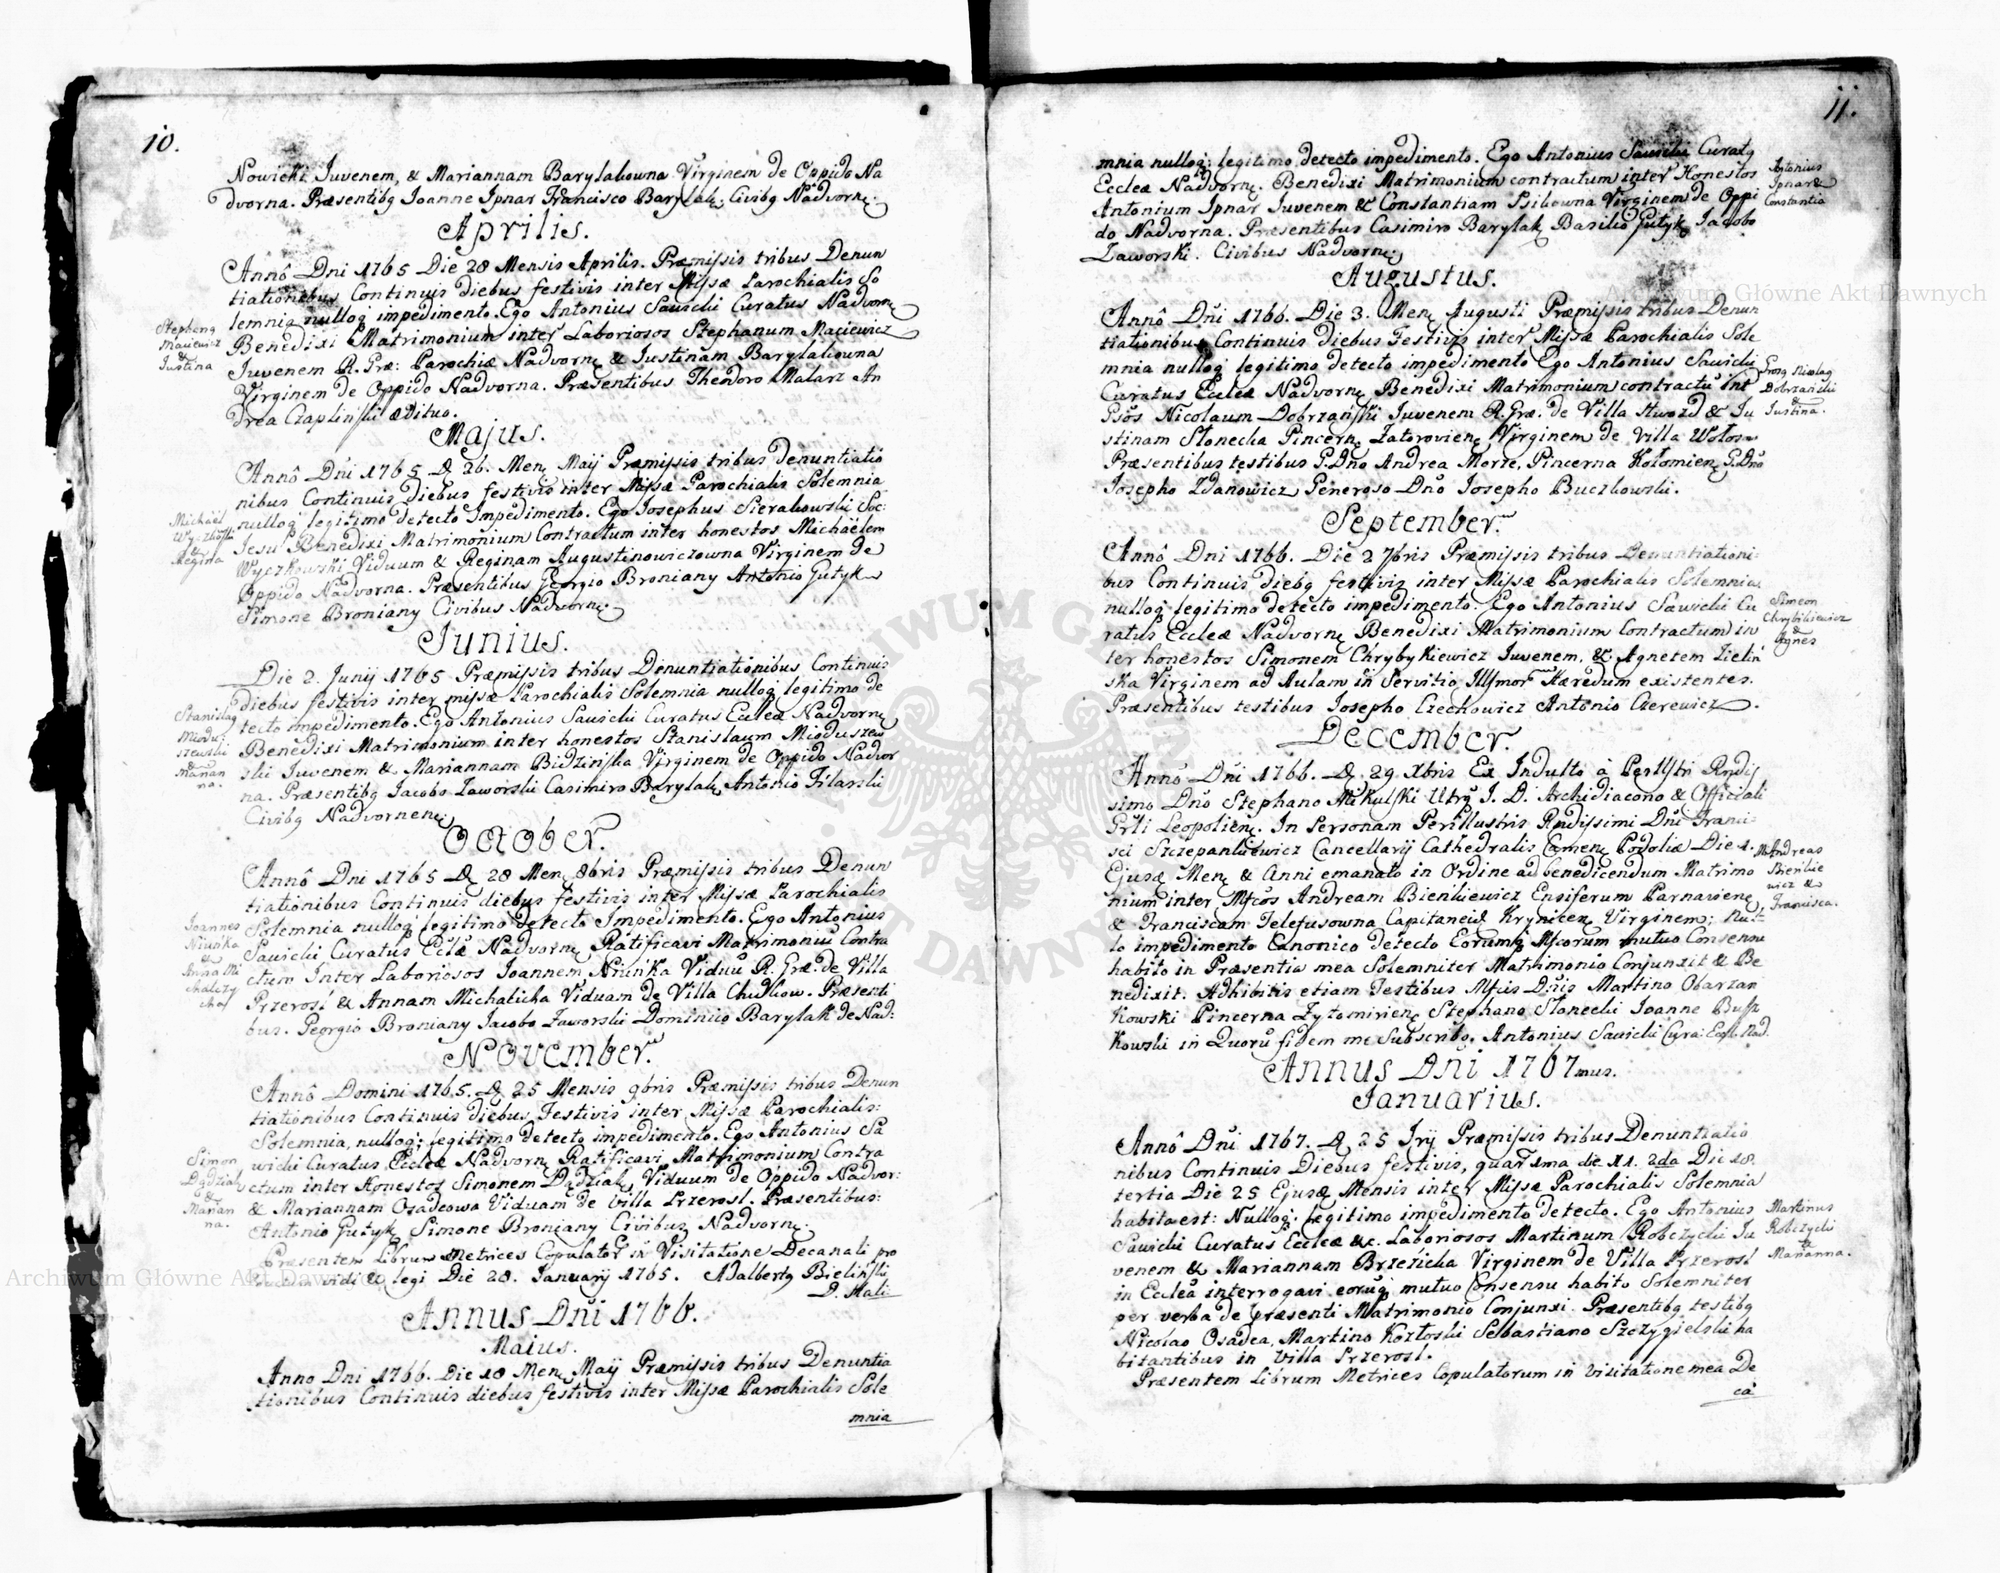 10.
Nowicki Juvenem, & Mariannam Barylakowna Virginem de Oppido Na
dvorna. Præsentibq Joanne Ipnar Francisco Barylak, Civibq Nadvorn.
Aprilis.
Annô Dni 1765 Die 28 Mensis Aprilis. Præmissis tribus Denun
tiationibus Continuis diebus festivis inter Missæ Parochialis So
lemnia nulloq impedimento. Ego Antonius Sawicki Curatus Nadvorn
Benedixi Matrimonium inter Laboriosos Stephanum Maciewicz
Juvenem R. Græ: Parochiæ Nadvorn & Justinam Barylakowna
Virginem de Oppido Nadvorna. Præsentibus Theodoro Malarz An
drea Czaplinski ædituo.
Stephanq
Maciewicz
&
Justina
Majus.
Annô Dni 1765 D 26. Men Maij Præmissis tribus denuntiatio
nibus Continuis Diebus festivis inter Missæ Parochialis Solemnia
nulloq legitimo detecto Impedimento. Ego Josephus Sierakowski Soc:
Jesu Benedixi Matrimonium Contractum inter honestos Michaëlem
Wyczkowski Viduum & Reginam Augustinowiczowna Virginem de
Oppido Nadvorna. Præsentibus Georgio Broniany Antonio Gutyk
Simone Broniany Civibus Nadvorn.
Michaël
&
Regina
Junius.
Die 2. Junij 1765 Præmissis tribus Denuntiationibus Continuis
diebus festivis inter missæ Parochialis Solemnia nulloq legitimo de
tecto impedimento. Ego Antonius Sawicki Curatus Eccleæ Nadvorn
Benedixi Matrimonium inter honestos Stanislaum Mioduszew
ski Juvenem & Mariannam Bidzińska Virginem de Oppido Nadvor
na. Præsentibq Jacobo Zaworski Casimiro Barylak, Antonio Filarski
Civibq Nadvornen
Stanislaq
Miodu:
szewski
&
Marian
na.
October.
Annô Dni 1765 D 28 Men 8bris Præmissis tribus Denun
tiationibus Continuis diebus festivis inter Missæ Parochialis
Solemnia nulloq legitimo detecto Impedimento. Ego Antonius
Sawicki Curatus Eclæ Nadvorn Ratificavi Matrimoniũ Contra
ctum Inter Laboriosos Joannem Niuńka Viduũ R. Græ: de Villa
Przerosl & Annam Michalicha Viduam de Villa Chudkow. Præsenti
bus. Georgio Broniany Jacobo Zaworski Dominico Barylak de Nad:
Joannes
Niuńka
&
Anna Mi
November.
Annô Domini 1765. D 25 Mensis 9bris Præmissis tribus Denun
tiationibus Continuis diebus Festivis inter Missæ Parochialis:
Solemnia, nulloq: legitimo detecto impedimento. Ego Antonius Sa
wicki Curatus Eccleæ Nadvorn Ratificavi Matrimonium Contra
ctum inter Honestos Simonem Dądziak, Viduum de Oppido Nadvor:
& Mariannam Osadcowa Viduam de Villa Przerosl. Præsentibus:
Antonio Gutyk Simone Broniany Civibus Nadvorn.
Simon
Dądziak
&
Marian
na.
Præsentem Librum Metrices Copulator in Visitatione Decanali pro
vidi & legi Die 28. Januarij 1765. Adalbertq Bieliński
D. Hali:
Annus Dni 1766.
Maius.
Anno Dni 1766. Die 18 Men Maij Præmissis tribus Denuntia
tionibus Continuis diebus festivis inter Missæ Parochialis Sole
mnia
11.
mnia nulloq: legitimo detecto impedimento. Ego Antonius Sawicki Curatq
Eccleæ Nadvorn. Benedixi Matrimonium contractum inter Honestos
Antonium Ipnar Juvenem & Constantiam Psikowna Virginem de Oppi
do Nadvorna. Præsentibus Casimiro Barylak, Basilio Gutyk Jacobo
Zaworski. Civibus Nadvorn.
Antonius
Ipnar &
Constantia
Augustus.
Annô Dni 1766. Die 3. Men Augusti Præmissis tribus Denun
tiationibus Continuis Diebus Festivis inter Missæ Parochialis Sole
mnia nulloq legitimo detecto impedimento Ego Antonius Sawicki
Curatus Eccleæ Nadvorn Benedixi Matrimonium contractũ int
Gsõs Nicolaum Dobrzański Juvenem R. Græ: de Villa Hwozd & Ju
stinam Słonecka Pincern Zatorovien Virginem de Villa Wołos
Præsentibus testibus G. Dno Andrea Morze, Pincerna Kołomien G. Dnõ
Josepho Zdanowicz Generoso Dnõ Josepho Buczkowski.
Nicolaq
Dobrzański
&
Justina.
September.
Annô Dni 1766. Die 2 7bris Præmissis tribus Denuntiationi:
bus Continuis diebq festivis inter Missæ Parochialis Solemnia
nulloq legitimo detecto impedimento. Ego Antonius Sawicki Cu
ratus Eccleæ Nadvorn Benedixi Matrimonium Contractum in
ter honestos Simonem Chrybykiewicz Juvenem, & Agnetem Zieliń
ska Virginem ad Aulam in Servitio Illsmor Hæredum existentes.
Præsentibus testibus Josepho Czechowicz Antonio Czerewicz.
Simeon
Chrybikiewicz
&
Agnes
December.
Annô Dni 1766. D 29 Xbris Ex Indulto à Perllstri Rndis
simo Dnõ Stephano Mikulski Utrq J. D. Archidiacono & Officiali
Grli Leopolien. In Personam Perillustris Rndissimi Dni Franci:
sci Szczepankiewicz Cancellarij Cathedralis Camen Podoliæ Die 1.
Ejusq Men & Anni emanato in Ordine ad benedicendum Matrimo
nium inter Mfcos Andream Bieńkiewicz Ensiferum Parnavien
& Franciscam Telefusowna Capitaneid Krynicen Virginem; Nul
lo impedimento Canonico detecto Eorumq Mfcorum mutuo Consensu
habito in Præsentia mea Solemniter Matrimonio Conjunxit & Be
nedixit. Adhibitis etiam Testibus Mfcis Dnis Martino Obarzan
kowski Pincerna Zytomirien Stephano Słonecki Joanne Buss
kowski in Quorũ fidem me Subscribo. Antonius Sawicki Cura: Eccl. Nad.
Andreas
Bieńkie
wicz &
Francisca.
Annus Dni 1767mus.
Januarius.
Annô Dni 1767. D 25 Jrij Præmissis tribus Denuntiatio
nibus Continuis Diebus festivis, quar 1ma die 11. 2da Die 18.
tertia Die 25 Ejusq Mensis inter Missæ Parochialis Solemnia
habita est: Nulloq: legitimo impedimento detecto. Ego Antonius
Sawicki Curatus Eccleæ &c. Laboriosos Martinum Robczycki Ju
venem & Mariannam Brzezicka Virginem de Villa Przerosl
in Ecclea interrogavi eorũq mutuo Consensu habito Solemniter
per verba de præsenti Matrimonio Conjunxi. Præsentibq testibq
Nicolao Osadca, Martino Kozłoski Sebastiano Szczygielski ha
bitantibus in Villa Przerosl.
Martinus
Robczycki
&
Marianna.
Præsentem Librum Metrices Copulatorum in Visitatione mea De
ca
Archiwum Główne Akt Dawnych
Archiwum Główne Akt Dawnych
ARCHIWUM GŁÓWNE AKT DAWNYCH